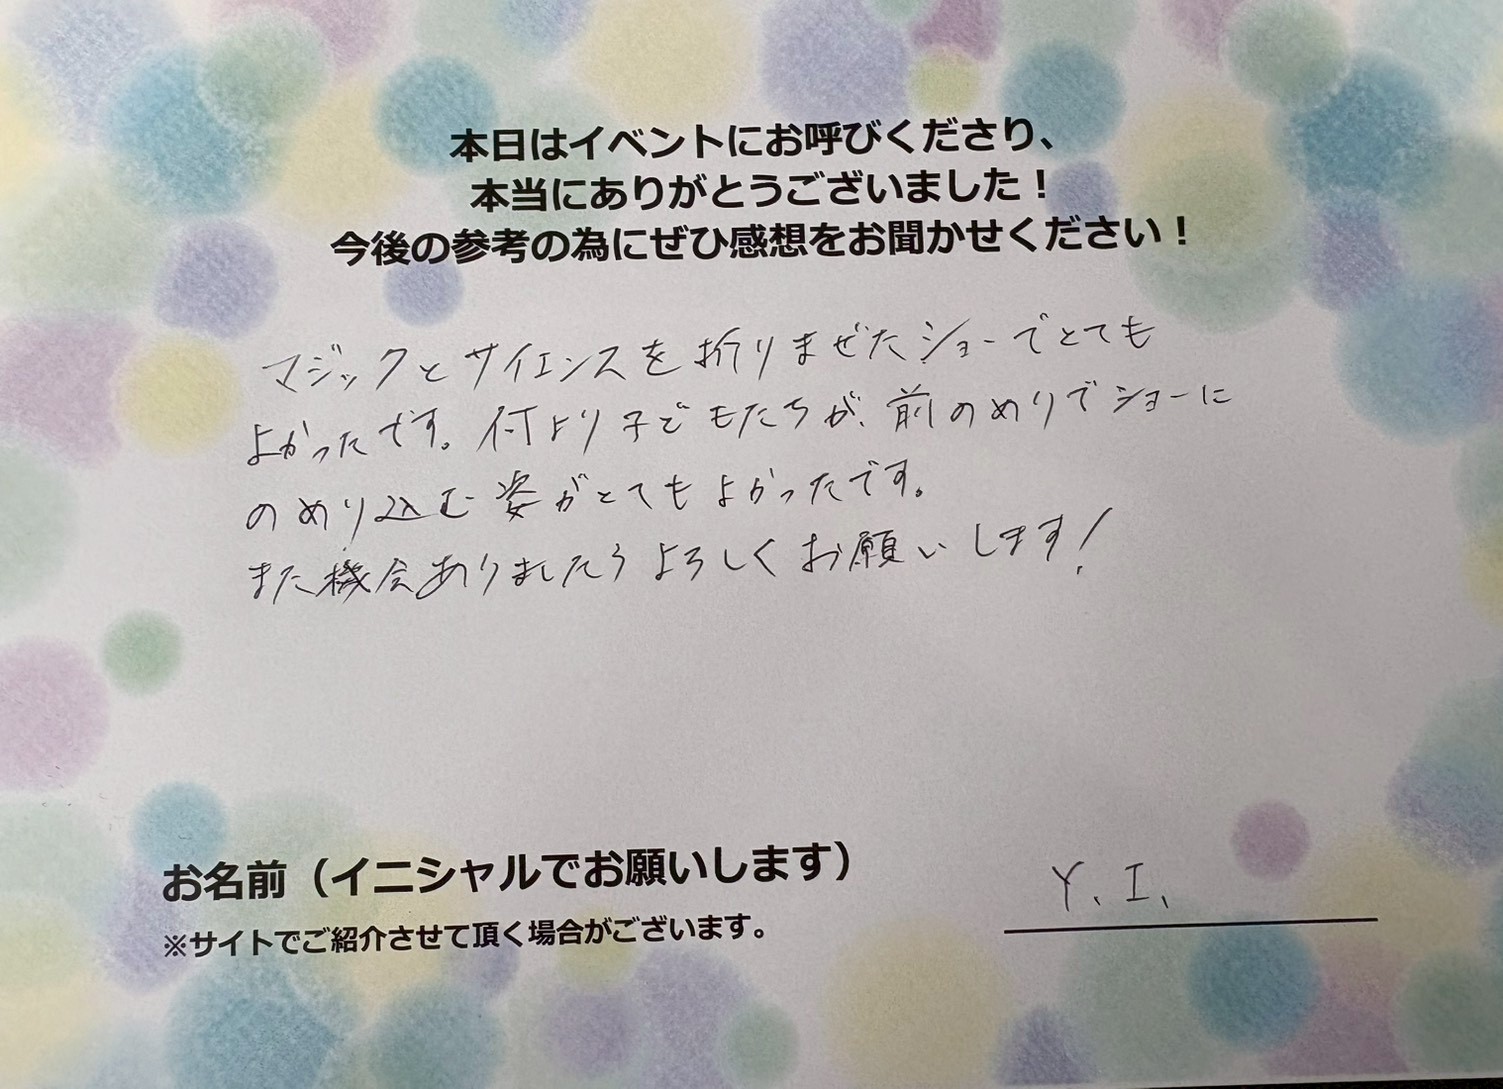 本日はイベントにお呼びくださり、
本当にありがとうございました！
今後の参考の為にぜひ感想をお聞かせください！
マジックとサイエンスを折りまぜたショーでとても
よかったです。何より子どもたちが、前のめりでショーに
のめり込む姿がとてもよかったです。
また機会ありましたらよろしくお願いします！
お名前（イニシャルでお願いします）
Y、I、
※サイトでご紹介させて頂く場合がございます。